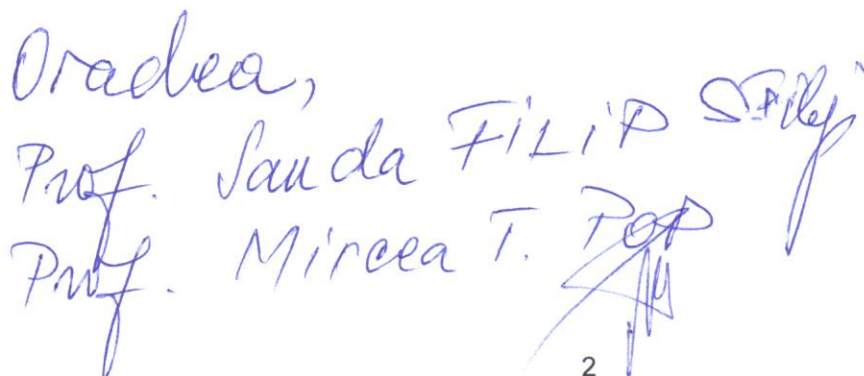 Oradea,
Prof. Sanda FILIP SFilip
Prof. Mircea T. POP
2